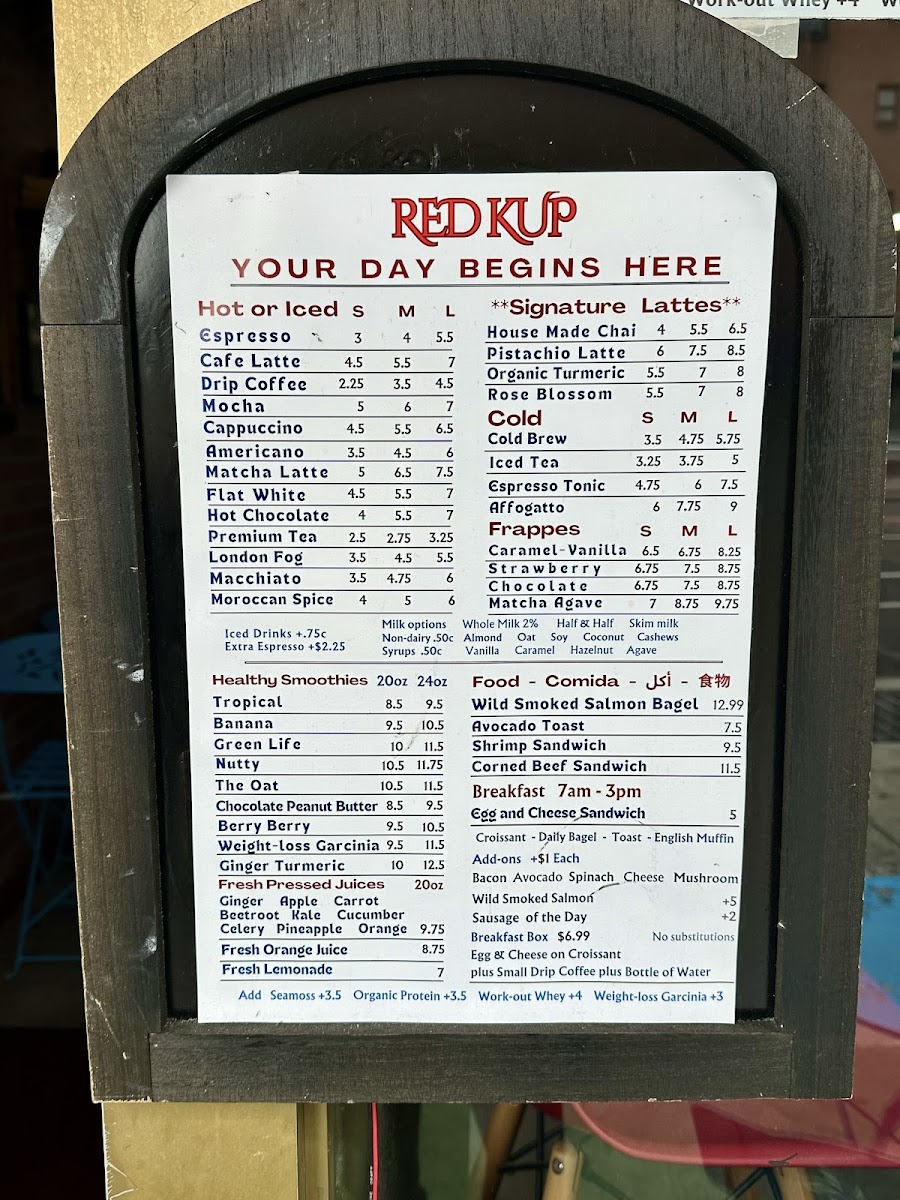 Work-out Whey +4
RED KUP
YOUR DAY BEGINS HERE
Hot or Iced S M L
Espresso 3 4 5.5
Cafe Latte 4.5 5.5 7
Drip Coffee 2.25 3.5 4.5
Mocha 5 6 7
Cappuccino 4.5 5.5 6.5
Americano 3.5 4.5 6
Matcha Latte 5 6.5 7.5
Flat White 4.5 5.5 7
Hot Chocolate 4 5.5 7
Premium Tea 2.5 2.75 3.25
London Fog 3.5 4.5 5.5
Macchiato 3.5 4.75 6
Moroccan Spice 4 5 6
**Signature Lattes**
House Made Chai 4 5.5 6.5
Pistachio Latte 6 7.5 8.5
Organic Turmeric 5.5 7 8
Rose Blossom 5.5 7 8
Cold S M L
Cold Brew 3.5 4.75 5.75
Iced Tea 3.25 3.75 5
Espresso Tonic 4.75 6 7.5
Affogatto 6 7.75 9
Frappes S M L
Caramel-Vanilla 6.5 6.75 8.25
Strawberry 6.75 7.5 8.75
Chocolate 6.75 7.5 8.75
Matcha Agave 7 8.75 9.75
Iced Drinks +.75c
Extra Espresso +$2.25
Milk options Whole Milk 2% Half & Half Skim milk
Non-dairy .50c Almond Oat Soy Coconut Cashews
Syrups .50c Vanilla Caramel Hazelnut Agave
Healthy Smoothies 20oz 24oz
Tropical 8.5 9.5
Banana 9.5 10.5
Green Life 10 11.5
Nutty 10.5 11.75
The Oat 10.5 11.5
Chocolate Peanut Butter 8.5 9.5
Berry Berry 9.5 10.5
Weight-loss Garcinia 9.5 11.5
Ginger Turmeric 10 12.5
Fresh Pressed Juices 20oz
Ginger Apple Carrot
Beetroot Kale Cucumber
Celery Pineapple Orange 9.75
Fresh Orange Juice 8.75
Fresh Lemonade 7
Food - Comida - أكل - 食物
Wild Smoked Salmon Bagel 12.99
Avocado Toast 7.5
Shrimp Sandwich 9.5
Corned Beef Sandwich 11.5
Breakfast 7am - 3pm
Egg and Cheese Sandwich 5
Croissant - Daily Bagel - Toast - English Muffin
Add-ons +$1 Each
Bacon Avocado Spinach Cheese Mushroom
Wild Smoked Salmon +5
Sausage of the Day +2
Breakfast Box $6.99 No substitutions
Egg & Cheese on Croissant
plus Small Drip Coffee plus Bottle of Water
Add Seamoss +3.5 Organic Protein +3.5 Work-out Whey +4 Weight-loss Garcinia +3